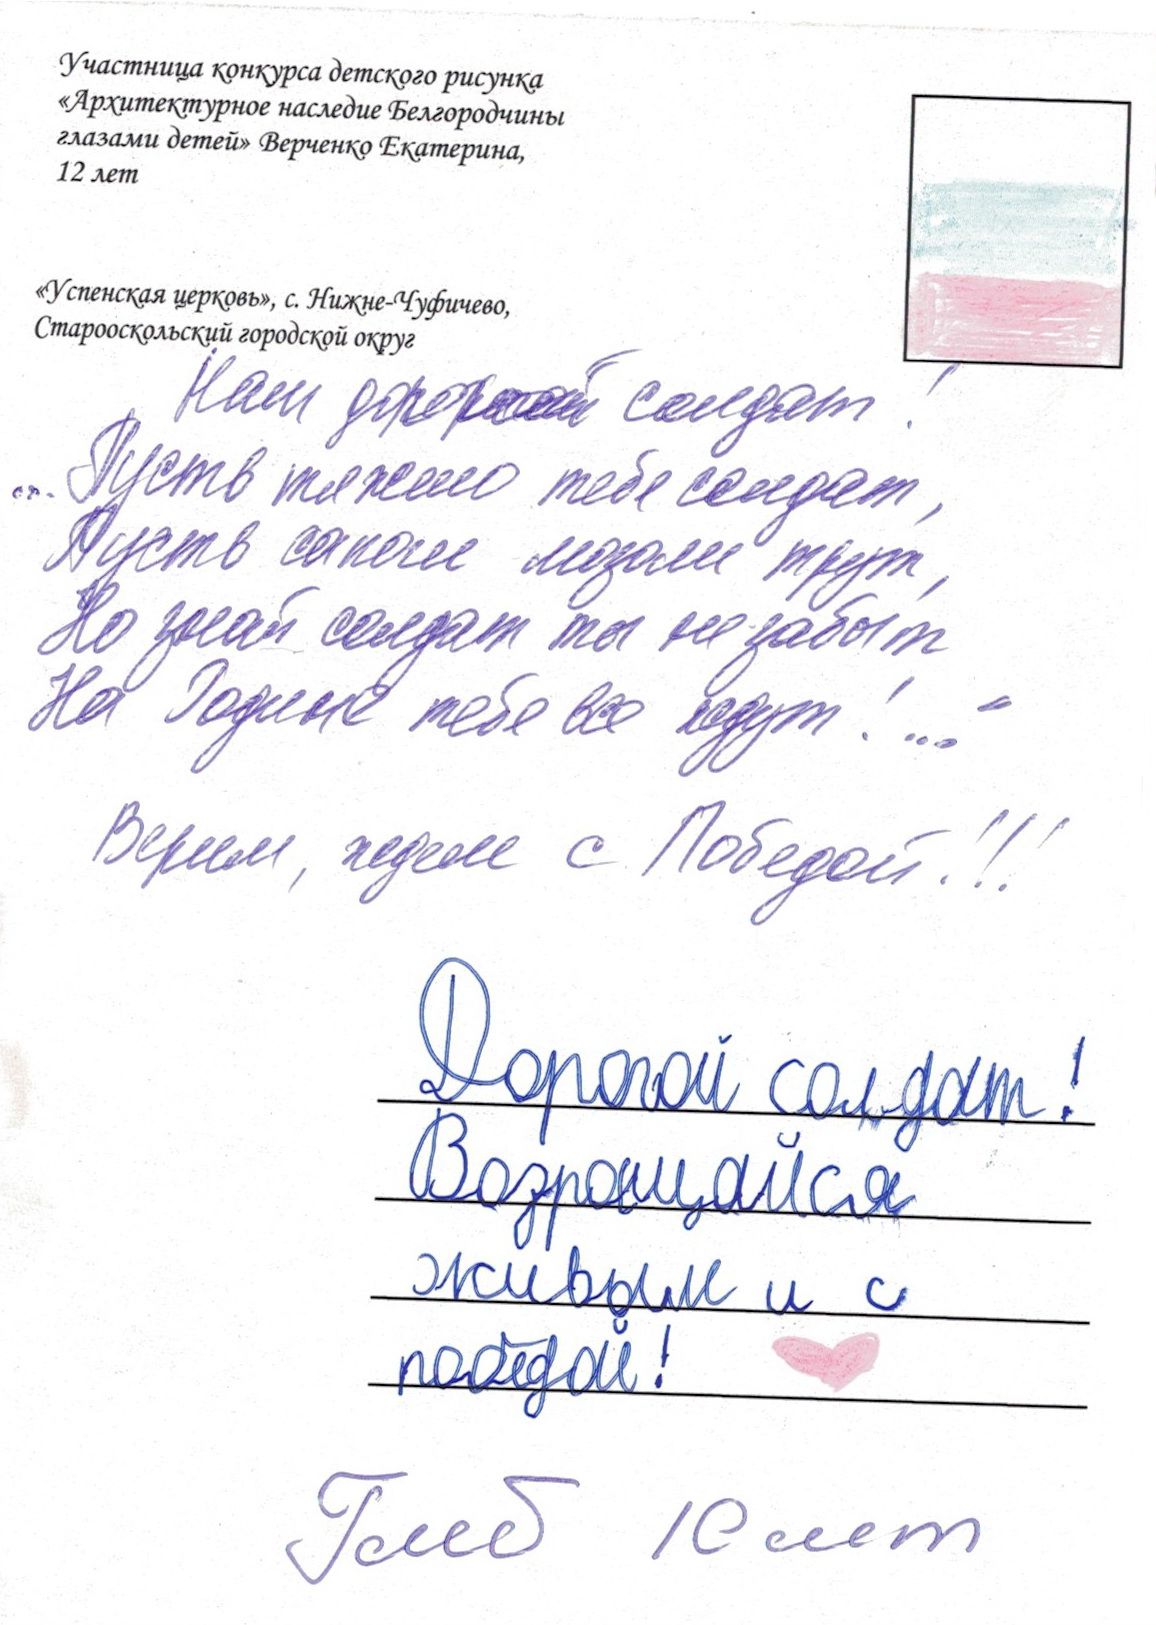 Участница конкурса детского рисунка
«Архитектурное наследие Белгородчины
глазами детей» Верченко Екатерина,
12 лет
«Успенская церковь», с. Нижне-Чуфичево,
Старооскольский городской округ
Наш дорогой солдат!
... Пусть тяжело тебе солдат,
Пусть сапоги мозоли трут,
Но знай солдат ты не забыт
На Родине тебя все ждут!..."
Верим, ждем с Победой!!!
Дорогой солдат!
Возрощайся
живым и с
победой!
Глеб 10 лет